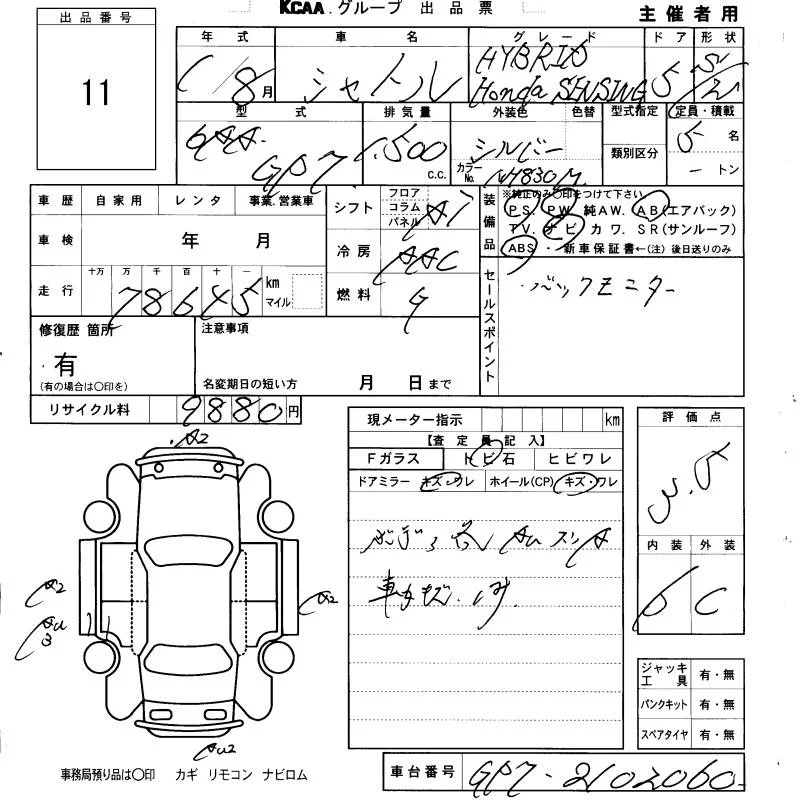 KCAA.グループ 出品票
主催者用
出品番号
11
年式 車名 グレード ドア 形状
1/8月 シャトル HYBRID Honda SENSING 5 S/Z
型式 排気量 外装色 色替 型式指定 定員・積載
GP7 1,500 c.c. シルバー カラーNo. NH830M 類別区分 5名
－トン
車歴 自家用 レンタ 事業.営業車
シフト フロア コラム パネル AT
装備品 ※純正のみ〇印をつけて下さい
PS. PW. 純AW. AB(エアバック)
TV. ナビ カワ. SR(サンルーフ)
ABS ・ 新車保証書←(注) 後日送りのみ
車検 年 月
冷房 AAC
走行 十万 万 千 百 十 一
78645 km マイル
燃料 G
セールスポイント
バックモニター
修復歴 箇所
・有
(有の場合は〇印を)
注意事項
名変期日の短い方 月 日まで
リサイクル料 9880円
現メーター指示 km
【査定員記入】
Fガラス トビ石 ヒビワレ
ドアミラー キズ・ワレ ホイール(CP) キズ・ワレ
評価点
内装 外装
C
A2
A2
A2
AU3
AU2
ジャッキ工具 有・無
パンクキット 有・無
スペアタイヤ 有・無
事務局預り品は〇印 カギ リモコン ナビロム
車台番号 GP7-2102060